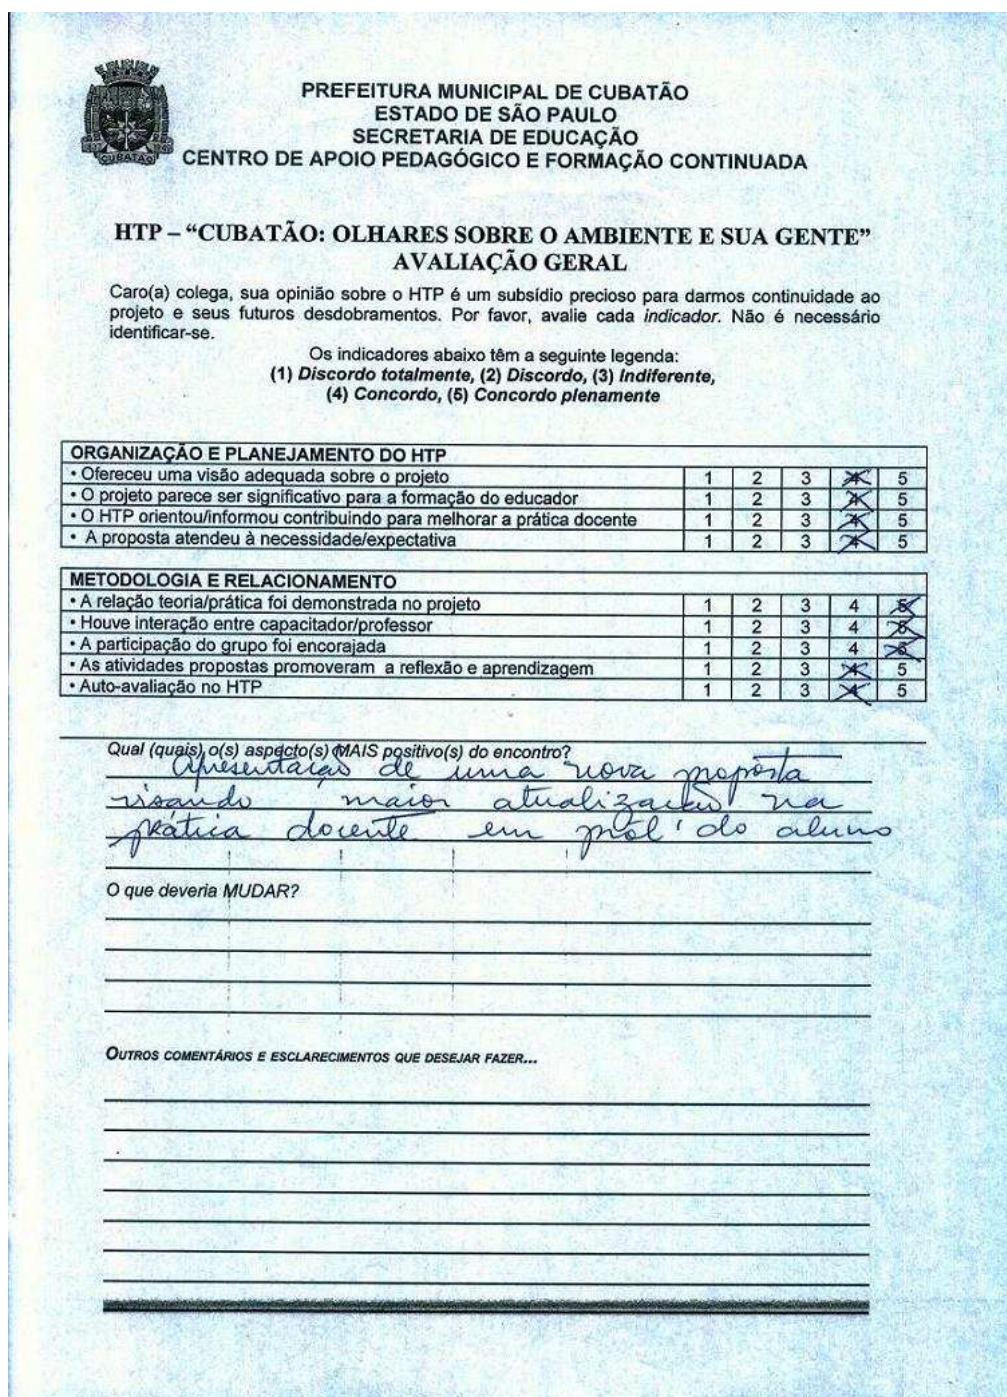 CUBATÃO
PREFEITURA MUNICIPAL DE CUBATÃO
ESTADO DE SÃO PAULO
SECRETARIA DE EDUCAÇÃO
CENTRO DE APOIO PEDAGÓGICO E FORMAÇÃO CONTINUADA
HTP – “CUBATÃO: OLHARES SOBRE O AMBIENTE E SUA GENTE”
AVALIAÇÃO GERAL
Caro(a) colega, sua opinião sobre o HTP é um subsídio precioso para darmos continuidade ao
projeto e seus futuros desdobramentos. Por favor, avalie cada indicador. Não é necessário
identificar-se.
Os indicadores abaixo têm a seguinte legenda:
(1) Discordo totalmente, (2) Discordo, (3) Indiferente,
(4) Concordo, (5) Concordo plenamente
ORGANIZAÇÃO E PLANEJAMENTO DO HTP
• Ofereceu uma visão adequada sobre o projeto 1 2 3 4 5
• O projeto parece ser significativo para a formação do educador 1 2 3 4 5
• O HTP orientou/informou contribuindo para melhorar a prática docente 1 2 3 4 5
• A proposta atendeu à necessidade/expectativa 1 2 3 4 5
METODOLOGIA E RELACIONAMENTO
• A relação teoria/prática foi demonstrada no projeto 1 2 3 4 5
• Houve interação entre capacitador/professor 1 2 3 4 5
• A participação do grupo foi encorajada 1 2 3 4 5
• As atividades propostas promoveram a reflexão e aprendizagem 1 2 3 4 5
• Auto-avaliação no HTP 1 2 3 4 5
Qual (quais) o(s) aspecto(s) MAIS positivo(s) do encontro?
Apresentação de uma nova proposta
visando maior atualização na
prática docente em pról do aluno
O que deveria MUDAR?
OUTROS COMENTÁRIOS E ESCLARECIMENTOS QUE DESEJAR FAZER...